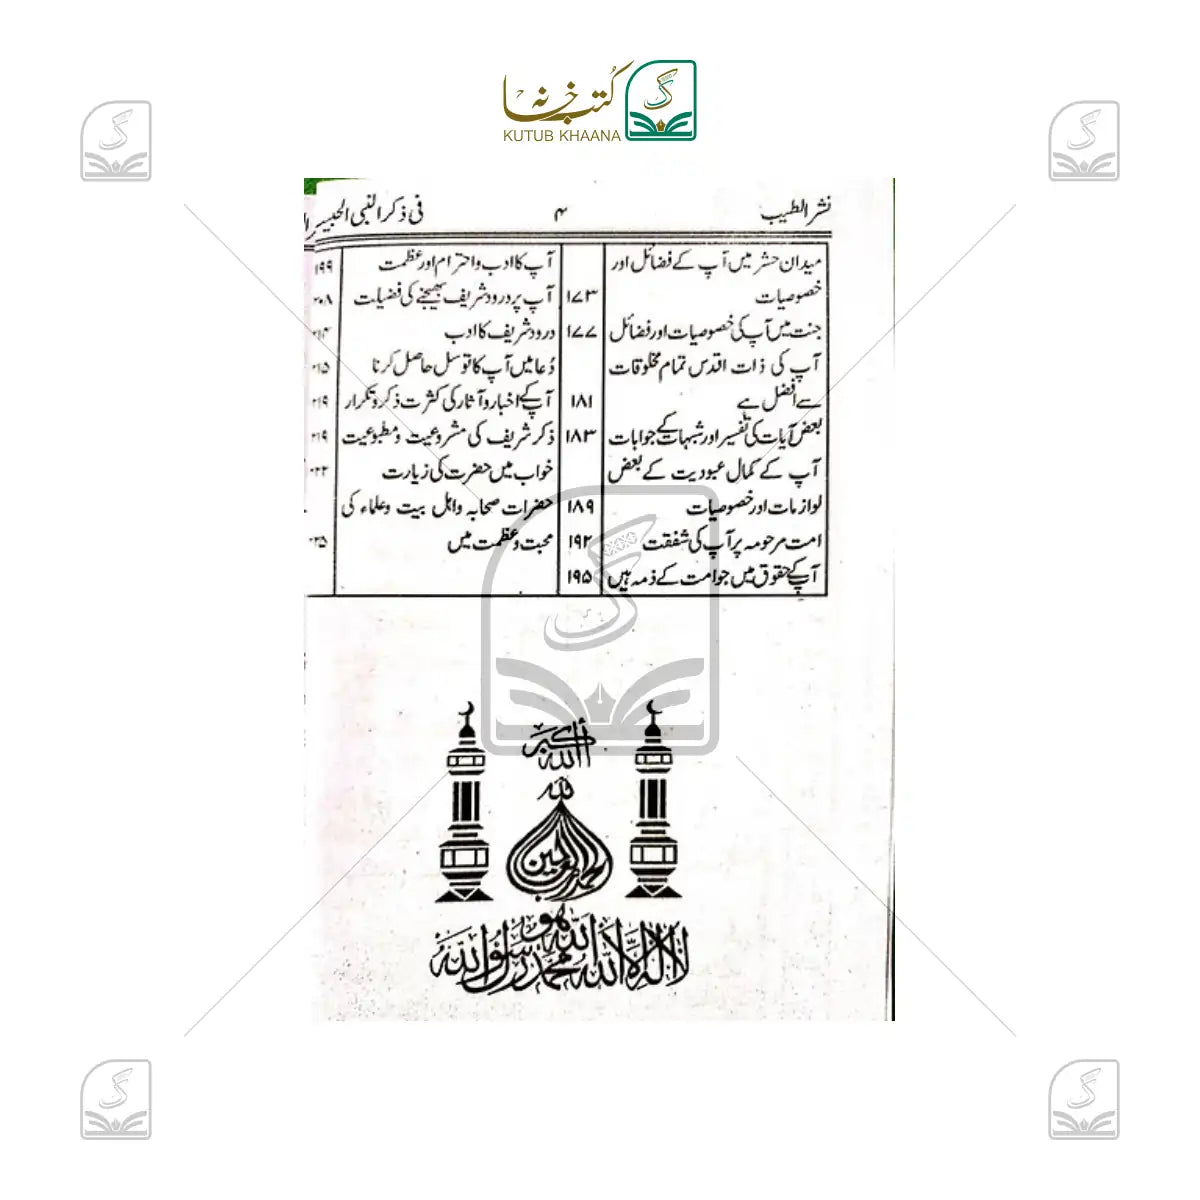 کُتب خانہ
KUTUB KHAANA
نشر الطیب
۴
فی ذکر النبی الحبیب
میدان حشر میں آپ کے فضائل اور
خصوصیات ۱۷۳
جنت میں آپ کی خصوصیات اور فضائل ۱۷۷
آپ کی ذات اقدس تمام مخلوقات
سے افضل ہے ۱۸۱
بعض آیات کی تفسیر اور شبہات کے جوابات ۱۸۳
آپ کے کمال عبودیت کے بعض
لوازمات اور خصوصیات ۱۸۹
امت مرحومہ پر آپ کی شفقت ۱۹۲
آپ کے حقوق میں جو امت کے ذمہ ہیں ۱۹۵
آپ کا ادب و احترام اور عظمت ۱۹۹
آپ پر درود شریف بھیجنے کی فضیلت ۲۰۸
درود شریف کا ادب ۲۱۴
دُعا میں آپ کا توسل حاصل کرنا ۲۱۵
آپ کے اخبار و آثار کی کثرت ذکر و تکرار ۲۱۹
ذکر شریف کی مشروعیت و مطبوعیت ۲۱۹
خواب میں حضرت کی زیارت
حضرات صحابہ و اہل بیت و علماء کی
محبت و عظمت میں
الله أكبر
لا اله الا الله محمد رسول الله